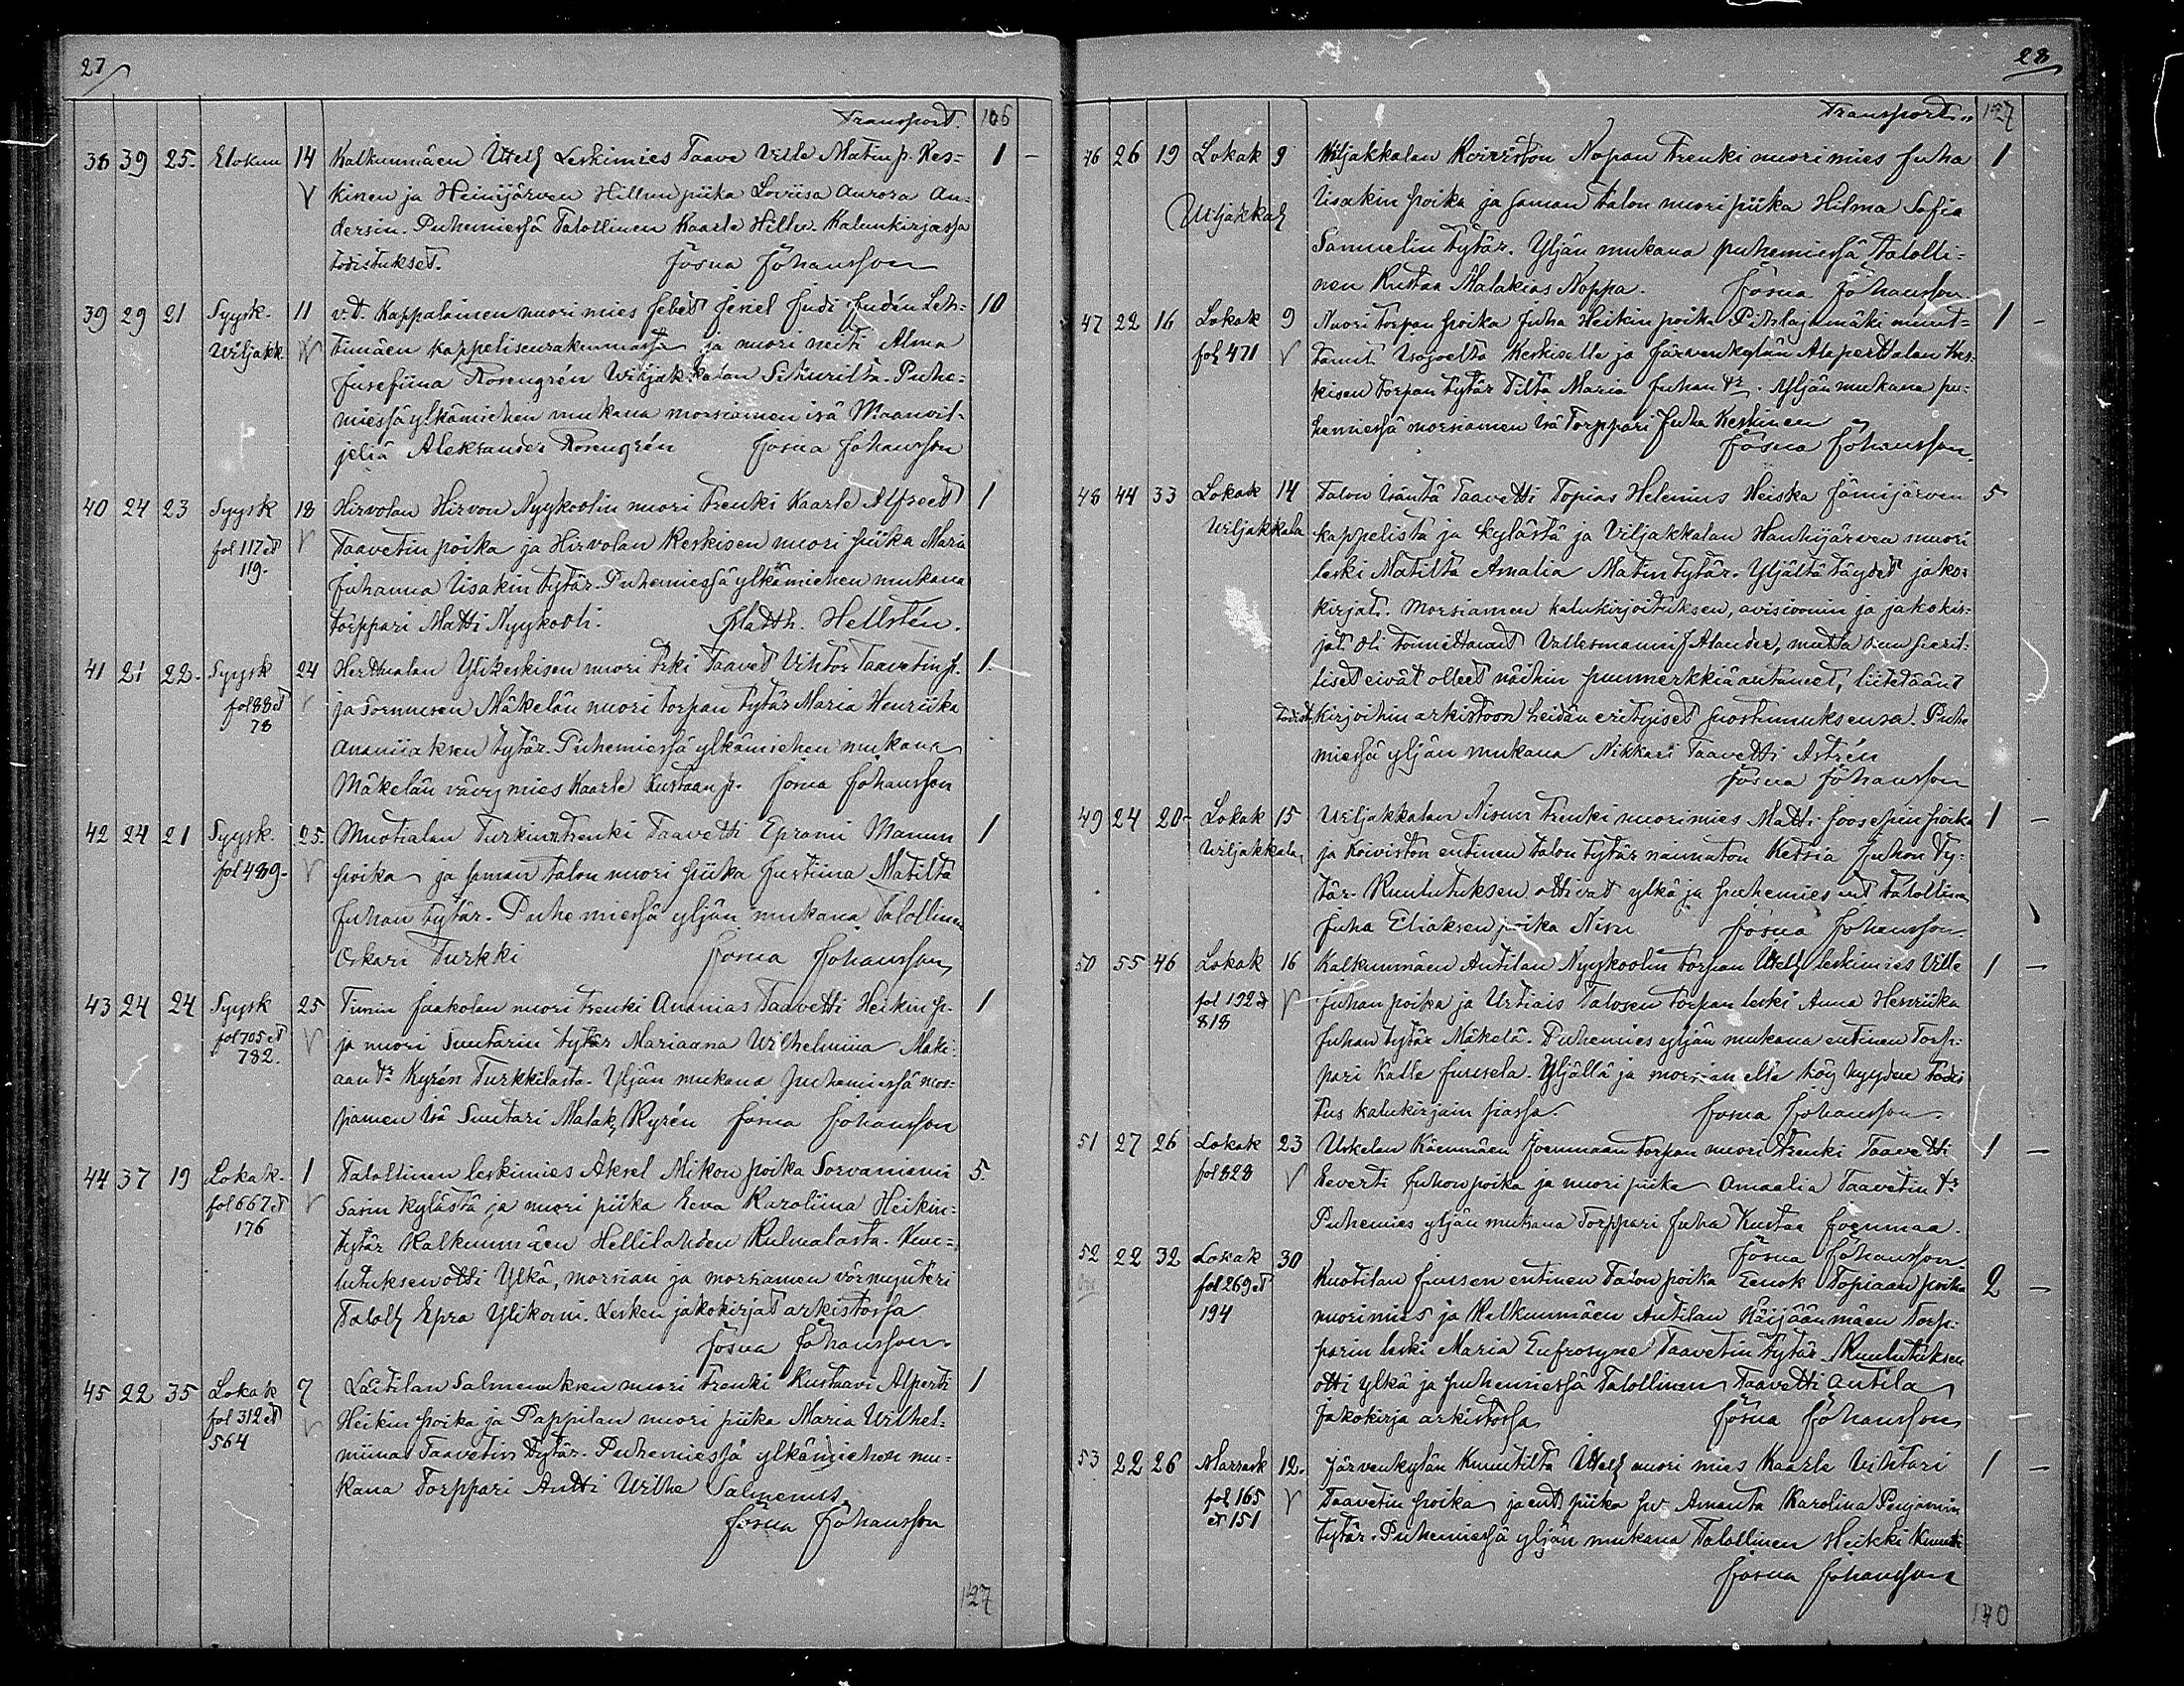 27
Transport. 106
38 39 25. Elokuu 14 Kalkunmäen Ittell Leskimies Taave Ville Matin p. Kes= 1 -
kinen ja Heinijärven Hillun piika Loviisa Aurora An=
dersin. Puhemiessä Talollinen Kaarle Hillu. Kalunkirjassa
todistukset. Josua Johansson
39 29 21 Syysk. 11 v.t. Kappalainen nuori mies Judén Leh= 10
Viljakk. timäen kappeliseurakunnassa ja nuori neiti Alma
Josefiina Rosengrén Viljakkalan Puhe=
miessä ylkämiehen mukana morsiamen isä Maanvil=
jeliä Aleksander Rosengrén Josua Johansson
40 24 23 Syysk 18 Hirvolan Hirvon Nyykoolin nuori trenki Kaarle Alfreet 1
fol 117 et Taavetin poika ja Hirvolan Keskisen nuori piika Maria
119. Juhanna Iisakin tytär. Puhemiessä ylkämiehen mukana
torppari Matti Nyykooli. Matth. Hellstén.
41 21 22. Syysk 24 Herttualan Ylikeskisen nuori trki Taavet Vihtor Taavetin p. 1.
fol 88 et ja Sormusen Mäkelän nuori torpan tytär Maria Henriika
78 Ananiiaksen tytär. Puhemiessä ylkämiehen mukana
Mäkelän vävymies Kaarle Kustaan p. Josua Johansson
42 24 21 Syysk. 25. Muotialan Turkin trenki Taavetti Eprami Manun 1
fol 489. poika ja saman talon nuori piika Justiina Matilta
Juhan tytär. Puhemiessä yljän mukana Talollinen
Oskari Turkki Josua Johansson
43 24 24 Syysk 25 Timin Jaakolan nuori trenki Ananias Taavetti Heikin p. 1
fol 705 et ja nuori Suutarin tytär Mariaana Vilhelmiina Maki=
782. aan tr Kyrén Turkkilasta. Yljän mukana puhemiessä mor=
siamen isä Suutari Malak Kyrén Josua Johansson
44 37 19 Lokak. 1 Talollinen leskimies Aksel Mikon poika Sorvaniemi 5.
fol 667 et Sasin kylästä ja nuori piika Eeva Karoliina Heikin=
176 tytär Kalkunmäen Hellilahden Kulmalasta. Kuu=
lutuksen otti Ylkä, morsian ja morsiamen vörmynteri
Taloll Epra Ylikomi. Lesken jakokirjat arkistossa
Josua Johansson.
45 22 35 Lokak 7 Laitilan Salmenuksen nuori trenki Kustaavi Alpertti 1
fol 312 et Heikin poika ja Pappilan nuori piika Maria Vilhel=
564 miina Taavetin tytär. Puhemiessä ylkämiehen mu=
kana Torppari Antti Vilhe Salmenus.
Josua Johansson
127
28
Transport. 127
46 26 19 Lokak 9 Viljakkalan Koiviston Nopan trenki nuori mies Juha 1
Viljakkal Iisakin poika ja saman talon nuori piika Hilma Sofia
Samuelin tytär. Yljän mukana puhemiessä talolli=
nen Kustaa Malakias Noppa. Josua Johansson
47 22 16 Lokak 9 Nuori torpan poika Juha Heikin poika muut= 1 -
fol 471 tanut Isojoelta Keskiselle ja Järvenkylän Alaperttalan Kes=
kisen torpan tytär Tilta Maria Juhan tr. Yljän mukana pu=
hemiessä morsiamen isä Torppari Juha Keskinen
Josua Johansson.
48 44 33 Lokak 14 Talon isäntä Taavetti Topias Helenius Heiska Jämijärven 5
Viljakkala kappelista ja kylästä ja Viljakkalan Hanhijärven nuori
leski Matilta Amalia Matin tytär. Yljältä täydet jako=
kirjat. Morsiamen kalukirjoituksen, avisioonin ja jakokir=
jat oli toimittanut Vallesmanni J Alander, mutta
liset eivät olleet näihin puumerkkiä antaneet, liitetäänt
todist. kirjoihin arkistoon heidän erityiset suostumuksensa. Puhe
miessä yljän mukana Nikkari Taavetti Astrén
Josua Johansson
49 24 20 Lokak 15 Viljakkalan Nisun trenki nuori mies Matti Joosepin poika 1 -
Viljakkala ja Koiviston entinen talon tytär naimaton Ketsia Juhon ty=
tär. Kuulutuksen ottivat ylkä ja puhemies ent talollinen
Juha Eliaksen poika Nisu Josua Johansson.
50 55 46 Lokak 16 Kalkunmäen Antilan Nyykoolin torpan Ittell leskimies Ville 1 -
fol 192 et Juhan poika ja Urtiais Talosen torpan leski Anna Henriika
818 Juhan tytär Mäkelä. Puhemies yljän mukana entinen Torp=
pari Kalle Juusela. Yljällä ja morsianella todis
tus kalukirjain piassa. Josua Johansson.
51 27 26 Lokak 23 Uskelan Käenmäen Joenmaan torpan nuori trenki Taavetti 1 -
fol 828 Eeverti Juhon poika ja nuori piika Amaalia Taavetin tr
Puhemies yljän mukana Torppari Juha Kustaa Joenmaa.
Josua Johansson.
52 22 32 Lokak 30 Kuotilan Jussen entinen Talon poika Eenok Topiaan poika 2 -
fol 269 et nuori mies ja Kalkunmäen Antilan Käijäänmäen Torp=
194 parin leski Maria Eufrosyne Taavetin tytär. Kuulutuksen
otti ylkä ja puhemiessä Talollinen Taavetti Antila
Jakokirja arkistossa Josua Johansson
53 22 26 Marrask 12. Järvenkylän Kuuttilta Ittell nuori mies Kaarle Vihtari 1 -
fol 165 Taavetin poika ja ent piika Amanta Karolina Penjamin
et 151 tytär. Puhemiessä yljän mukana Talollinen Heikki Kuutti
Josua Johansson
140